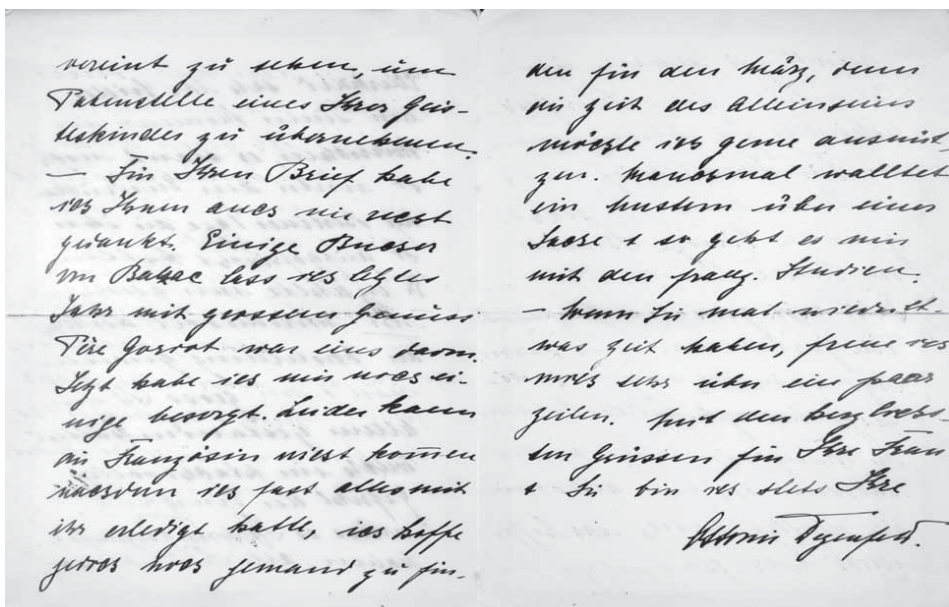 vereint zu sehen, um
Patenstelle eines Ihrer Geis-
teskinder zu übernehmen.
— Für Ihren Brief habe
ich Ihnen auch nie recht
gedankt. Einige Bücher
von Balzac lass ich letztes
Jahr mit grossem Genuss
Père Goriot war eins davon.
Jetzt habe ich mir noch ei-
nige besorgt. Leider kann
die Französin nicht kom̅en
nachdem ich fast alles mit
ihr erledigt hatte, ich hoffe
jedoch noch jemand zu fin-
den für den März, denn
die Zeit des Alleinseins
möchte ich gerne ausnüt-
zen. Manchmal walltet
ein Unstern über einer
Sache + so geht es mir
mit den franz. Studien.
— Wenn Sie mal wieder et-
was Zeit haben, freue ich
mich sehr über ein paar
Zeilen. Mit den herzlichs-
ten Grüssen für Ihre Frau
+ Sie bin ich stets Ihre
Ottonie Degenfeld.